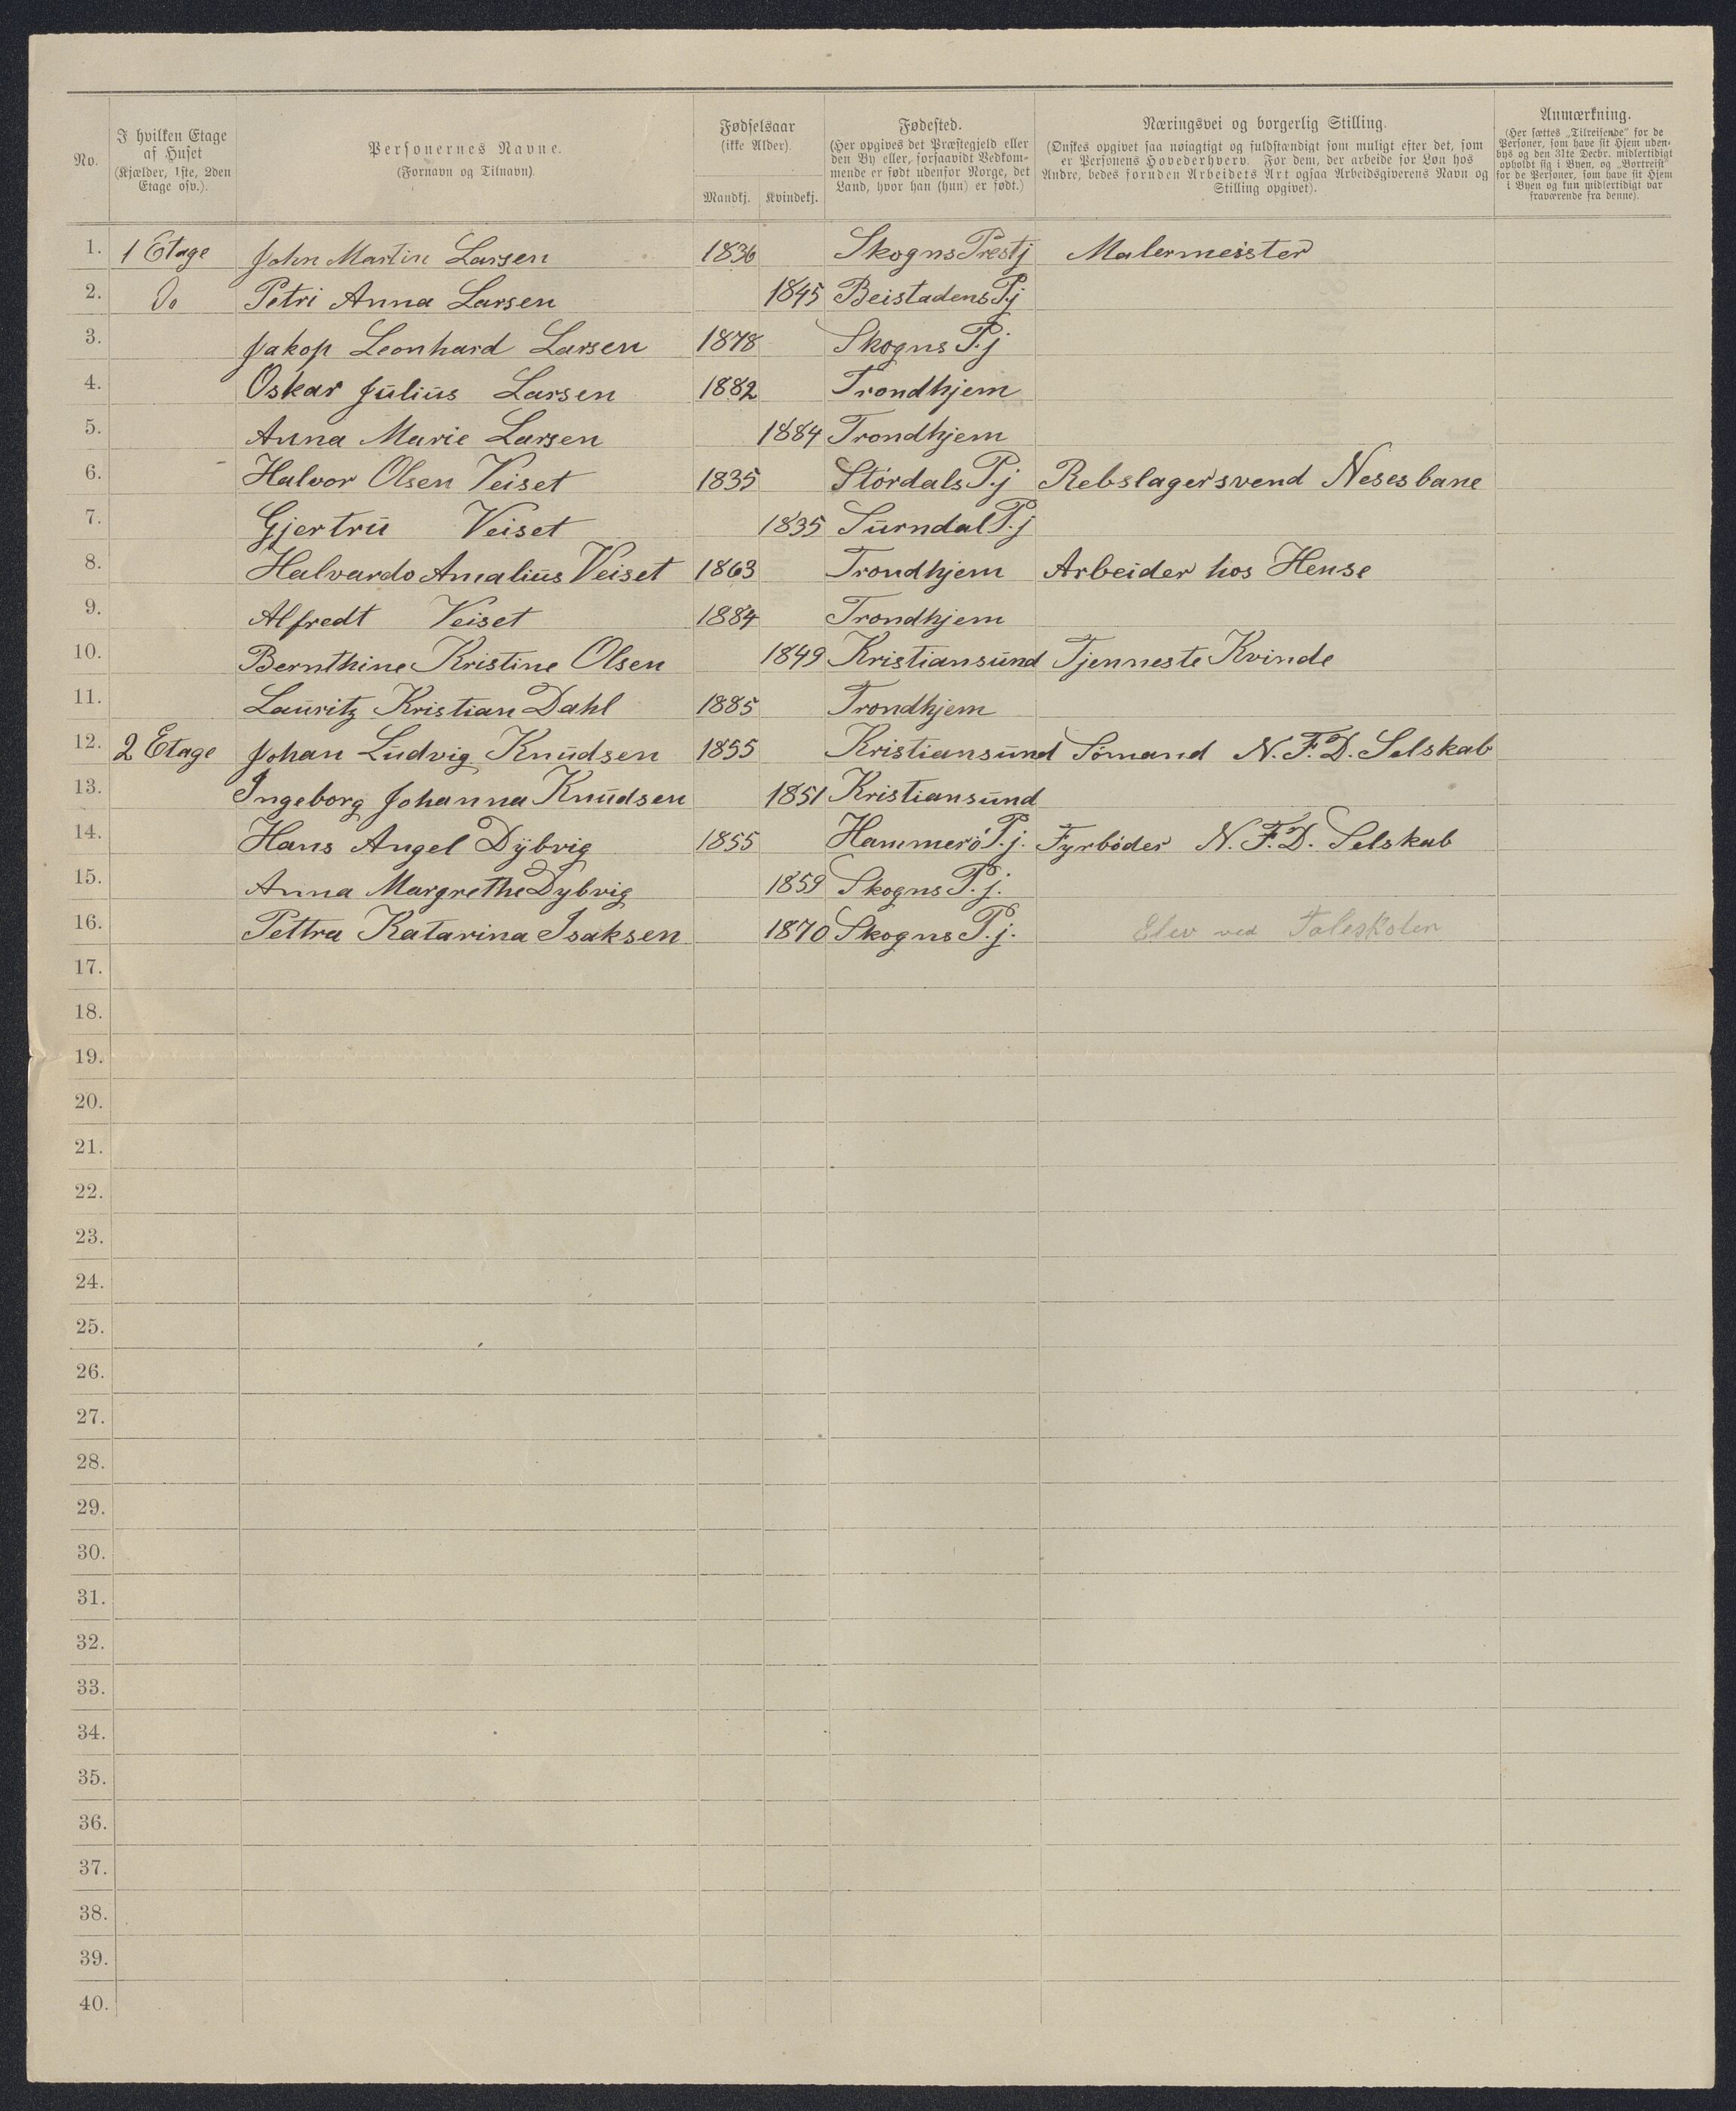 No.
I hvilken Etage af Huset (Kjælder, 1ste, 2den Etage osv.).
Personernes Navne. (Fornavn og Tilnavn)
Fødselsaar (ikke Alder). Mandkj. Kvindekj.
Fødested. (Her opgives det Præstegjeld eller den By eller, forsaavidt Vedkommende er født udenfor Norge, det Land, hvor han (hun) er født.)
Næringsvei og borgerlig Stilling. (Ønskes opgivet saa nøiagtigt og fuldstændigt som muligt efter det, som er Personens Hovederhverv. For dem, der arbeide for Løn hos Andre, bedes foruden Arbeidets Art ogsaa Arbeidsgiverens Navn og Stilling opgivet).
Anmærkning. (Her sættes „Tilreisende" for de Personer, som have sit Hjem udenbys og den 31te Decbr. midlertidigt opholdt sig i Byen, og „Bortreist" for de Personer, som have sit Hjem i Byen og kun midlertidigt var fraværende fra denne).
1. 1 Etage John Martin Larsen 1836 Skogns Prestj Malermeister
2. Do Petri Anna Larsen 1845 Beistadens P.j
3. Jakop Leonhard Larsen 1878 Skogns P.j
4. Oskar Julius Larsen 1882 Trondhjem
5. Anna Marie Larsen 1884 Trondhjem
6. Halvor Olsen Veiset 1835 Stördals P.j Rebslagersvend Nesesbane
7. Gjertru Veiset 1835 Surndal P.j
8. Halvardo Amalius Veiset 1863 Trondhjem Arbeider hos Hense
9. Alfredt Veiset 1884 Trondhjem
10. Bernthine Kristine Olsen 1849 Kristiansund Tjenneste Kvinde
11. Lauritz Kristian Dahl 1885 Trondhjem
12. 2 Etage Johan Ludvig Knudsen 1855 Kristiansund Sömand N. F. D. Selskab
13. Ingeborg Johanna Knudsen 1851 Kristiansund
14. Hans Angel Dÿbvig 1855 Hammerö P.j. Fyrböder N. F. D. Selskab
15. Anna Margrethe Dybvig 1859 Skogns P.j.
16. Pettra Katarina Isaksen 1870 Skogns P.j. Elev ved Taleskolen
17.
18.
19.
20.
21.
22.
23.
24.
25.
26.
27.
28.
29.
30.
31.
32.
33.
34.
35.
36.
37.
38.
39.
40.